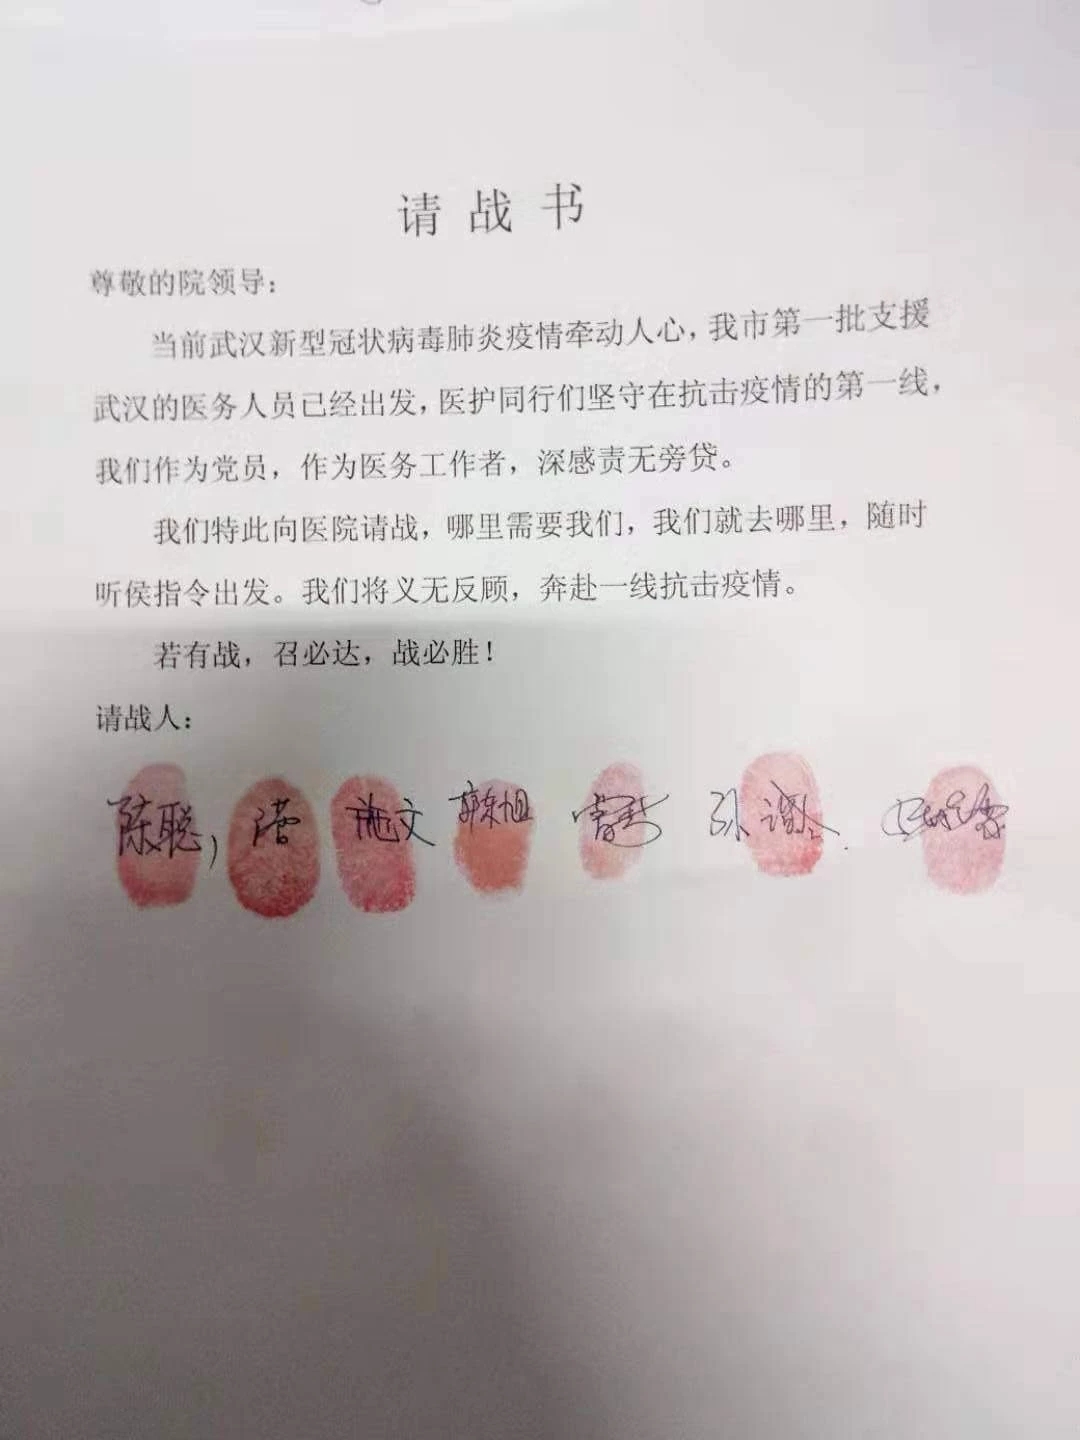 请战书
尊敬的院领导：
当前武汉新型冠状病毒肺炎疫情牵动人心，我市第一批支援
武汉的医务人员已经出发，医护同行们坚守在抗击疫情的第一线，
我们作为党员，作为医务工作者，深感责无旁贷。
我们特此向医院请战，哪里需要我们，我们就去哪里，随时
听侯指令出发。我们将义无反顾，奔赴一线抗击疫情。
若有战，召必达，战必胜！
请战人：
陈聪， 施文 孙